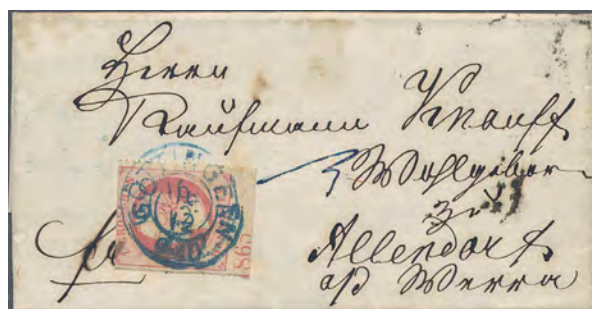 Herrn
Kaufmann Knauff
Wohlgeboren
zu
fr
Allendorf
a/d Werra
GOETTINGEN